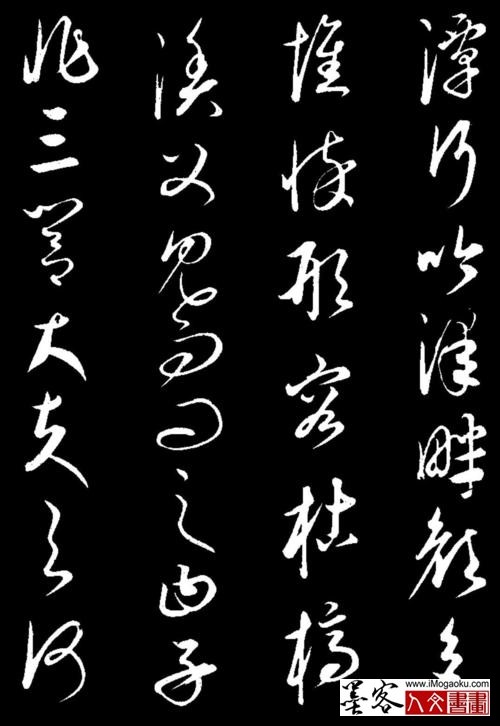 潭行吟澤畔顏色
憔悴形容枯槁
漁父見而問之曰子
非三閭大夫与何
www.iMogaoku.com
墨客
人文書畫